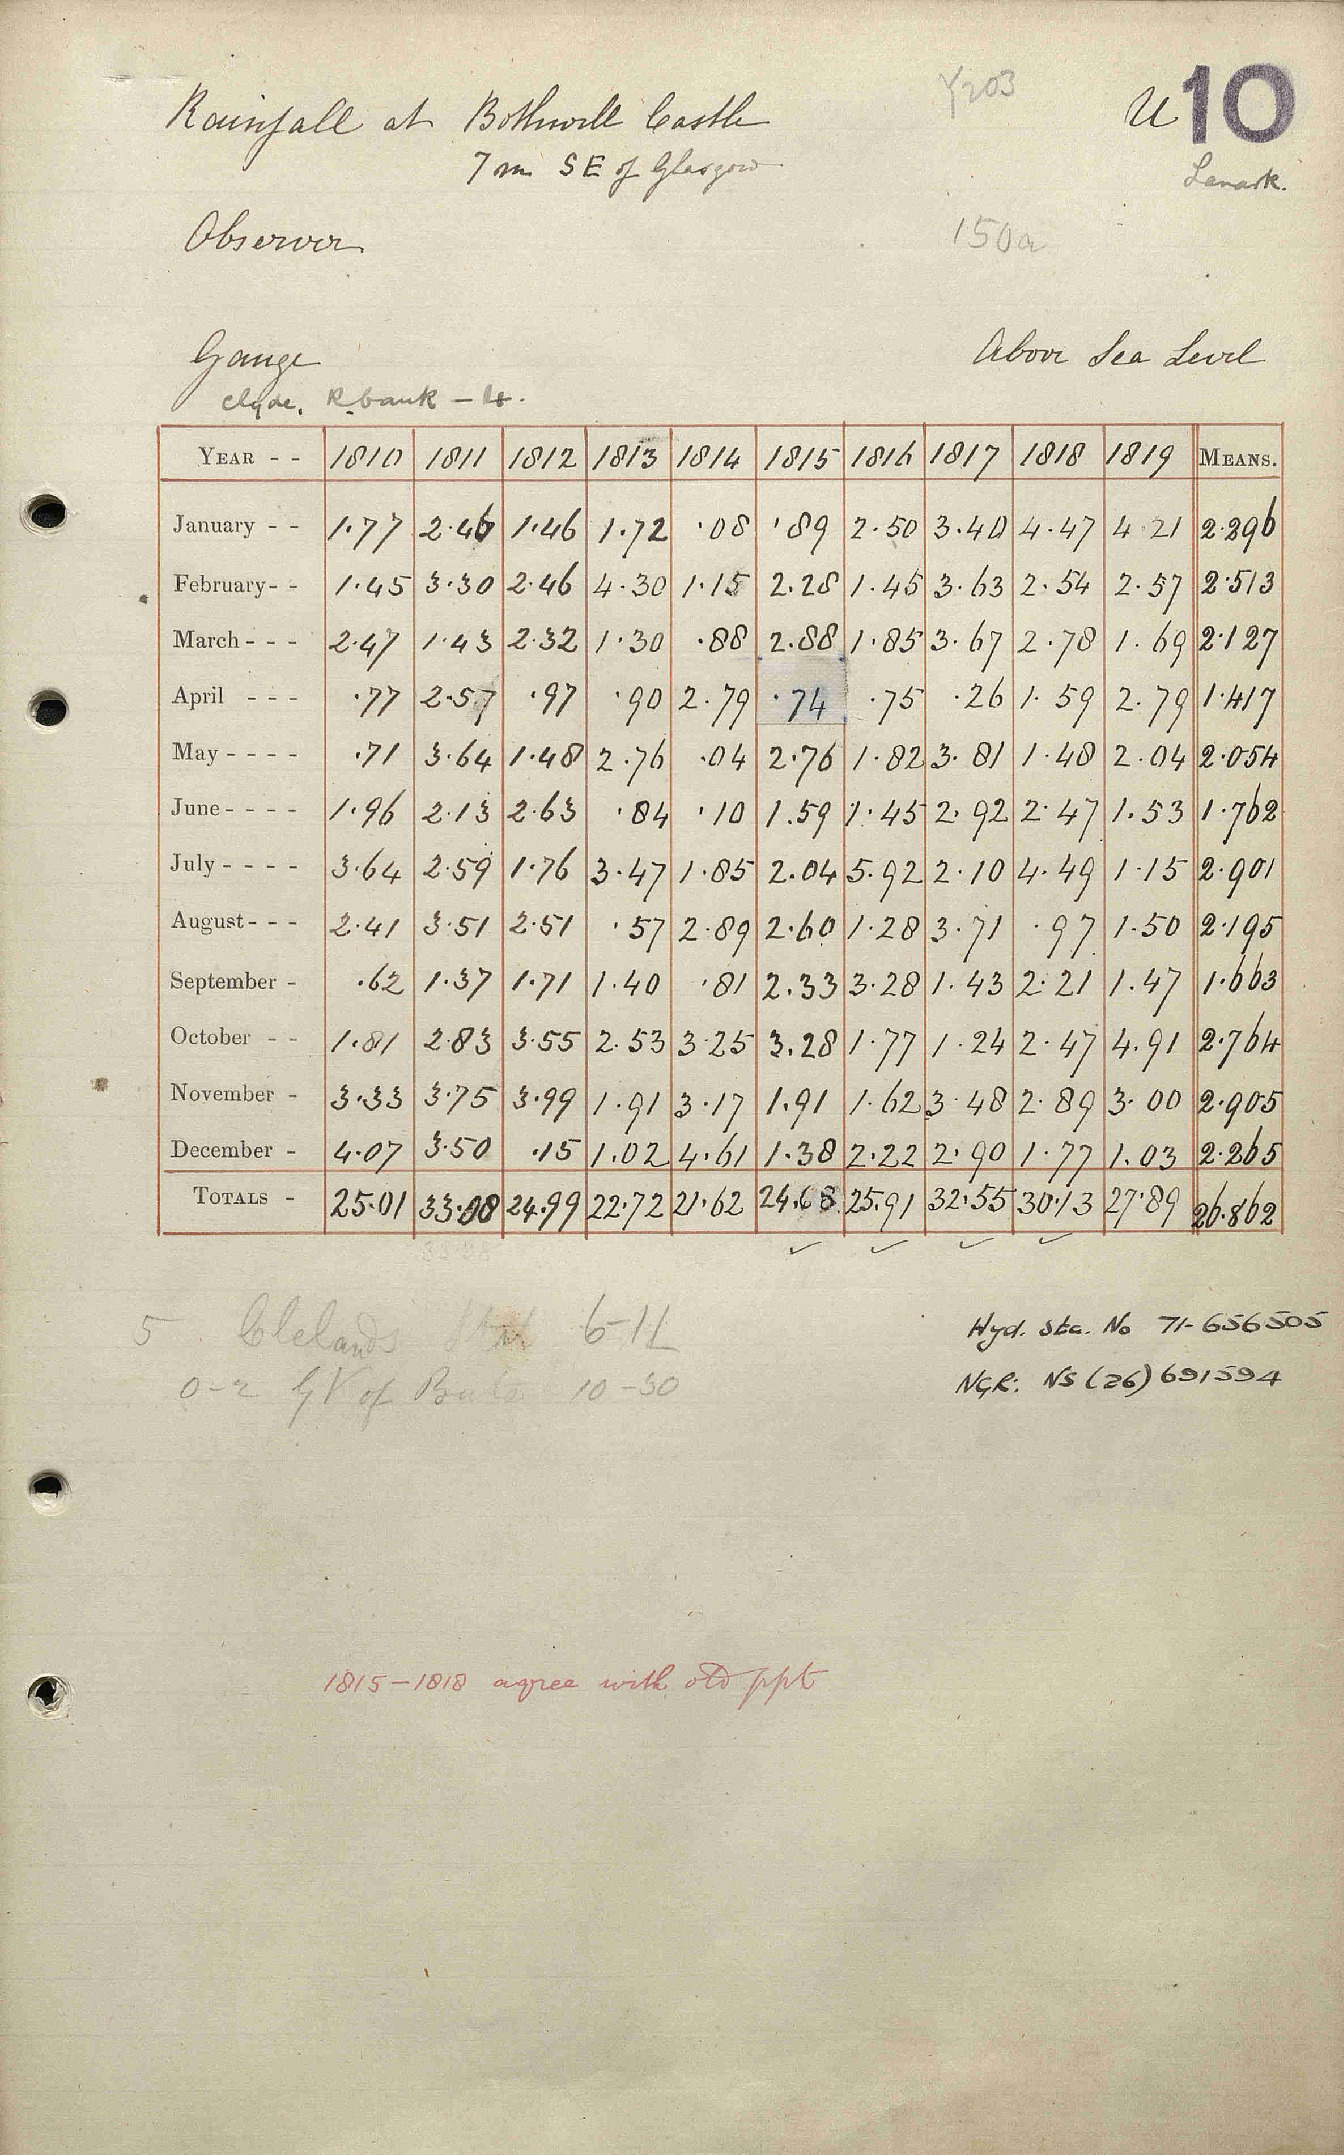 Y203
U 10
Rainfall at Bothwell Castle
7 m SE of Glasgow
Lanark.
Observer
150a
Gauge
Above Sea Level
Clyde. R. bank - 4.
YEAR - - 1810 1811 1812 1813 1814 1815 1816 1817 1818 1819 MEANS.
January - - 1.77 2.46 1.46 1.72 .08 .89 2.50 3.40 4.47 4.21 2.296
February - - 1.45 3.30 2.46 4.30 1.15 2.28 1.45 3.63 2.54 2.57 2.513
March - - - 2.47 1.43 2.32 1.30 .88 2.88 1.85 3.67 2.78 1.69 2.127
April - - - .77 2.57 .97 .90 2.79 .74 .75 .26 1.59 2.79 1.417
May - - - - .71 3.64 1.48 2.76 .04 2.76 1.82 3.81 1.48 2.04 2.054
June - - - - 1.96 2.13 2.63 .84 .10 1.59 1.45 2.92 2.47 1.53 1.762
July - - - - 3.64 2.59 1.76 3.47 1.85 2.04 5.92 2.10 4.49 1.15 2.901
August - - - 2.41 3.51 2.51 .57 2.89 2.60 1.28 3.71 .97 1.50 2.195
September - .62 1.37 1.71 1.40 .81 2.33 3.28 1.43 2.21 1.47 1.663
October - - 1.81 2.83 3.55 2.53 3.25 3.28 1.77 1.24 2.47 4.91 2.764
November - 3.33 3.75 3.99 1.91 3.17 1.91 1.62 3.48 2.89 3.00 2.905
December - 4.07 3.50 .15 1.02 4.61 1.38 2.22 2.90 1.77 1.03 2.265
TOTALS - 25.01 33.08 24.99 22.72 21.62 24.68 25.91 32.55 30.13 27.89 26.862
5 Clelands 6-11
Hyd. Sta. No 71-656505
0-2 of Bute 10-30
NGR: NS (26) 691594
1815-1818 agree with old ppt